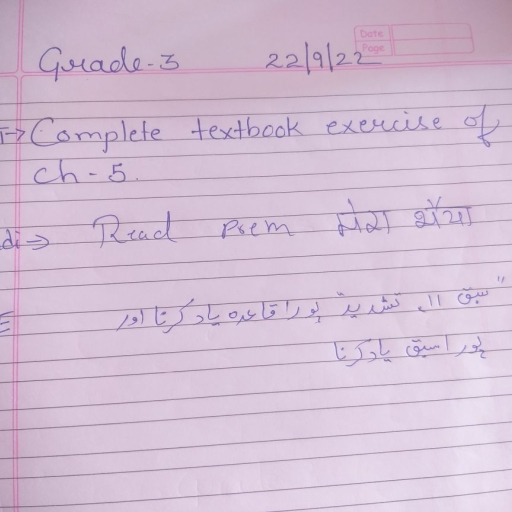 Date
Page
Grade-3 22/9/22
T→ Complete textbook exercise of
Ch-5.
di ⇒ Read Poem मेरा
"سبق ١١۔ تشدید" پورا قاعدہ یاد کرنا اور
پورا سبق یاد کرنا